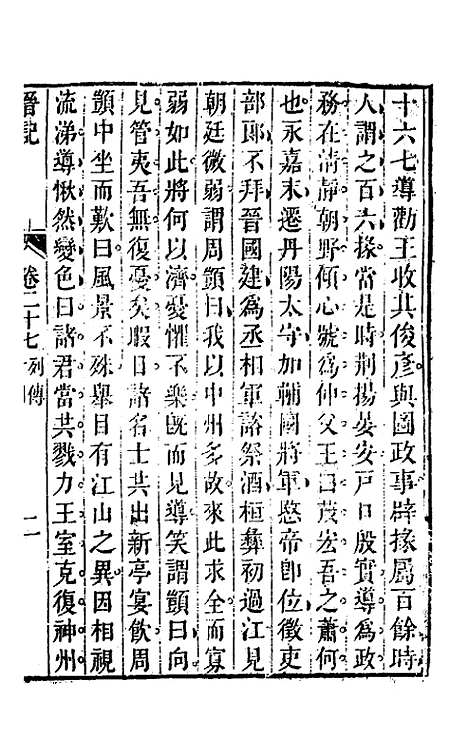 十六七導勸王收其俊彥與圖政事辟掾屬百餘時
人謂之百六掾當是時荆揚晏安戸口殷實導爲政
務在清靜朝野傾心號爲仲父王曰茂宏吾之蕭何
也永嘉末遷丹陽太守加輔國將軍愍帝卽位徵吏
部郎不拜晉國建爲丞相軍諮祭酒桓彝初過江見
朝廷微弱謂周顗曰我以中州多故來此求全而寡
弱如此將何以濟憂懼不樂旣而見導笑謂顗曰向
見管夷吾無復憂矣暇日諸名士共出新亭宴飮周
顗中坐而歎曰風景不殊舉目有江山之異因相視
流涕導愀然變色曰諸君當共戮力王室克復神州
晉記 卷二十七 列傳 二